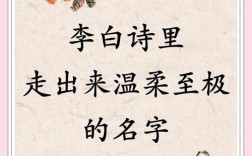 李白诗里
走出来温柔至极
的名字